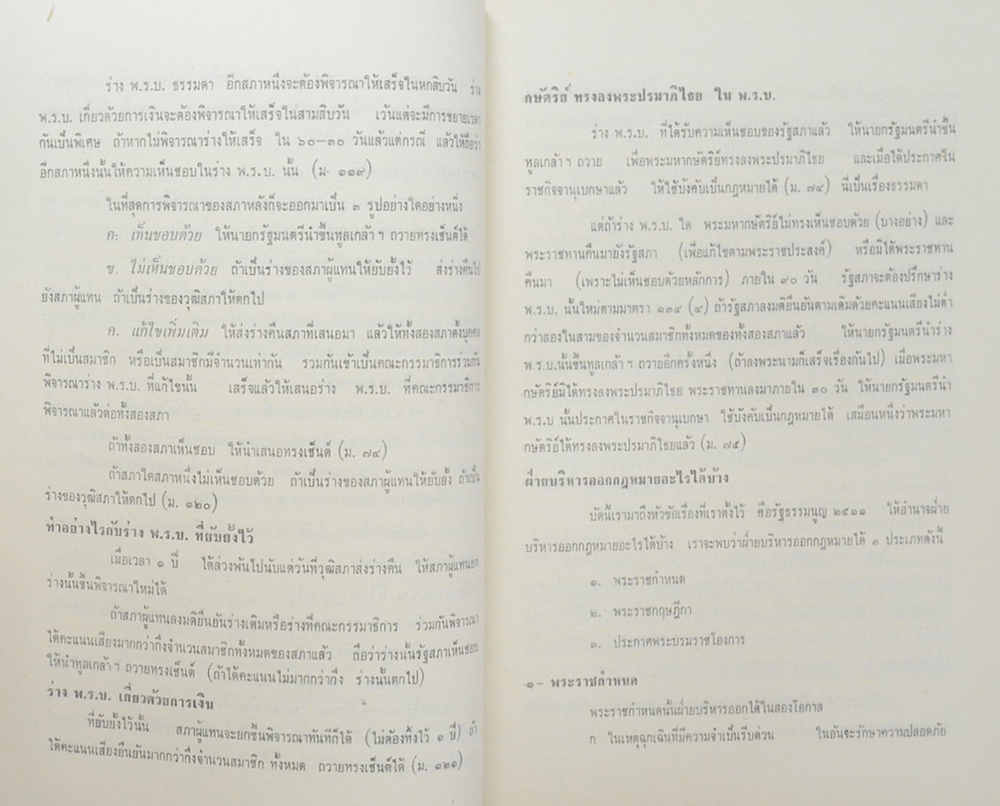 ร่าง พ.ร.บ. ธรรมดา อีกสภาหนึ่งจะต้องพิจารณาให้เสร็จในหกสิบวัน ร่าง
พ.ร.บ. เกี่ยวด้วยการเงินจะต้องพิจารณาให้เสร็จในสามสิบวัน เว้นแต่จะมีการขยายเวลา
กันเป็นพิเศษ ถ้าหากไม่พิจารณาร่างให้เสร็จ ใน ๖๐–๓๐ วันแล้วแต่กรณี แล้วให้ถือว่า
อีกสภาหนึ่งนั้นให้ความเห็นชอบในร่าง พ.ร.บ. นั้น (ม. ๑๑๙)
ในที่สุดการพิจารณาของสภาหลังก็จะออกมาเป็น ๓ รูปอย่างใดอย่างหนึ่ง
ก. เห็นชอบด้วย ให้นายกรัฐมนตรีนำขึ้นทูลเกล้าฯ ถวายทรงเซ็นต์ได้
ข. ไม่เห็นชอบด้วย ถ้าเป็นร่างของสภาผู้แทนให้ยับยั้งไว้ ส่งร่างคืนไป
ยังสภาผู้แทน ถ้าเป็นร่างของวุฒิสภาให้ตกไป
ค. แก้ไขเพิ่มเติม ให้ส่งร่างคืนสภาที่เสนอมา แล้วให้ทั้งสองสภาตั้งบุคคล
ที่ไม่เป็นสมาชิก หรือเป็นสมาชิกมีจำนวนเท่ากัน รวมกันเข้าเป็นคณะกรรมาธิการร่วมกัน
พิจารณาร่าง พ.ร.บ. ที่แก้ไขนั้น เสร็จแล้วให้เสนอร่าง พ.ร.บ. ที่คณะกรรมาธิการ
พิจารณาแล้วต่อทั้งสองสภา
ถ้าทั้งสองสภาเห็นชอบ ให้นำเสนอทรงเซ็นต์ (ม. ๗๔)
ถ้าสภาใดสภาหนึ่งไม่เห็นชอบด้วย ถ้าเป็นร่างของสภาผู้แทนให้ยับยั้ง ถ้าเป็น
ร่างของวุฒิสภาให้ตกไป (ม. ๑๒๐)
ทำอย่างไรกับร่าง พ.ร.บ. ที่ยับยั้งไว้
เมื่อเวลา ๑ ปี ได้ล่วงพ้นไปนับแต่วันที่วุฒิสภาส่งร่างคืน ให้สภาผู้แทนยก
ร่างนั้นขึ้นพิจารณาใหม่ได้
ถ้าสภาผู้แทนลงมติยืนยันร่างเดิมหรือร่างที่คณะกรรมาธิการ ร่วมกันพิจารณา
ได้คะแนนเสียงมากกว่ากึ่งจำนวนสมาชิกทั้งหมดของสภาแล้ว ถือว่าร่างนั้นรัฐสภาเห็นชอบ
ให้นำทูลเกล้าฯ ถวายทรงเซ็นต์ (ถ้าได้คะแนนไม่มากกว่ากึ่ง ร่างนั้นตกไป)
ร่าง พ.ร.บ. เกี่ยวด้วยการเงิน
ที่ยับยั้งไว้นั้น สภาผู้แทนจะยกขึ้นพิจารณาทันทีก็ได้ (ไม่ต้องทิ้งไว้ ๑ ปี) ถ้า
ได้คะแนนเสียงยืนยันมากกว่ากึ่งจำนวนสมาชิก ทั้งหมด ถวายทรงเซ็นต์ได้ (ม. ๑๒๑)
กษัตริย์ ทรงลงพระปรมาภิไธย ใน พ.ร.บ.
ร่าง พ.ร.บ. ที่ได้รับความเห็นชอบของรัฐสภาแล้ว ให้นายกรัฐมนตรีนำขึ้น
ทูลเกล้าฯ ถวาย เพื่อพระมหากษัตริย์ทรงลงพระปรมาภิไธย และเมื่อได้ประกาศใน
ราชกิจจานุเบกษาแล้ว ให้ใช้บังคับเป็นกฎหมายได้ (ม. ๗๔) นี่เป็นเรื่องธรรมดา
แต่ถ้าร่าง พ.ร.บ. ใด พระมหากษัตริย์ไม่ทรงเห็นชอบด้วย (บางอย่าง) และ
พระราชทานคืนมายังรัฐสภา (เพื่อแก้ไขตามพระราชประสงค์) หรือมิได้พระราชทาน
คืนมา (เพราะไม่เห็นชอบด้วยหลักการ) ภายใน ๙๐ วัน รัฐสภาจะต้องปรึกษาร่าง
พ.ร.บ. นั้นใหม่ตามมาตรา ๑๓๔ (๔) ถ้ารัฐสภาลงมติยืนยันตามเดิมด้วยคะแนนเสียงไม่ต่ำ
กว่าสองในสามของจำนวนสมาชิกทั้งหมดของทั้งสองสภาแล้ว ให้นายกรัฐมนตรีนำร่าง
พ.ร.บ.นั้นขึ้นทูลเกล้าฯ ถวายอีกครั้งหนึ่ง (ถ้าลงพระนามก็เสร็จเรื่องกันไป) เมื่อพระมหา
กษัตริย์มิได้ทรงลงพระปรมาภิไธย พระราชทานลงมาภายใน ๓๐ วัน ให้นายกรัฐมนตรีนำ
พ.ร.บ นั้นประกาศในราชกิจจานุเบกษา ใช้บังคับเป็นกฎหมายได้ เสมือนหนึ่งว่าพระมหา
กษัตริย์ได้ทรงลงพระปรมาภิไธยแล้ว (ม. ๗๕)
ฝ่ายบริหารออกกฎหมายอะไรได้บ้าง
บัดนี้เรามาถึงหัวข้อเรื่องที่เราตั้งไว้ คือรัฐธรรมนูญ ๒๕๑๑ ให้อำนาจฝ่าย
บริหารออกกฎหมายอะไรได้บ้าง เราจะพบว่าฝ่ายบริหารออกกฎหมายได้ ๓ ประเภทดังนี้
๑. พระราชกำหนด
๒. พระราชกฤษฎีกา
๓. ประกาศพระบรมราชโองการ
๑– พระราชกำหนด
พระราชกำหนดนั้นฝ่ายบริหารออกได้ในสองโอกาส
ก ในเหตุฉุกเฉินที่มีความจำเป็นรีบด่วน ในอันจะรักษาความปลอดภัย